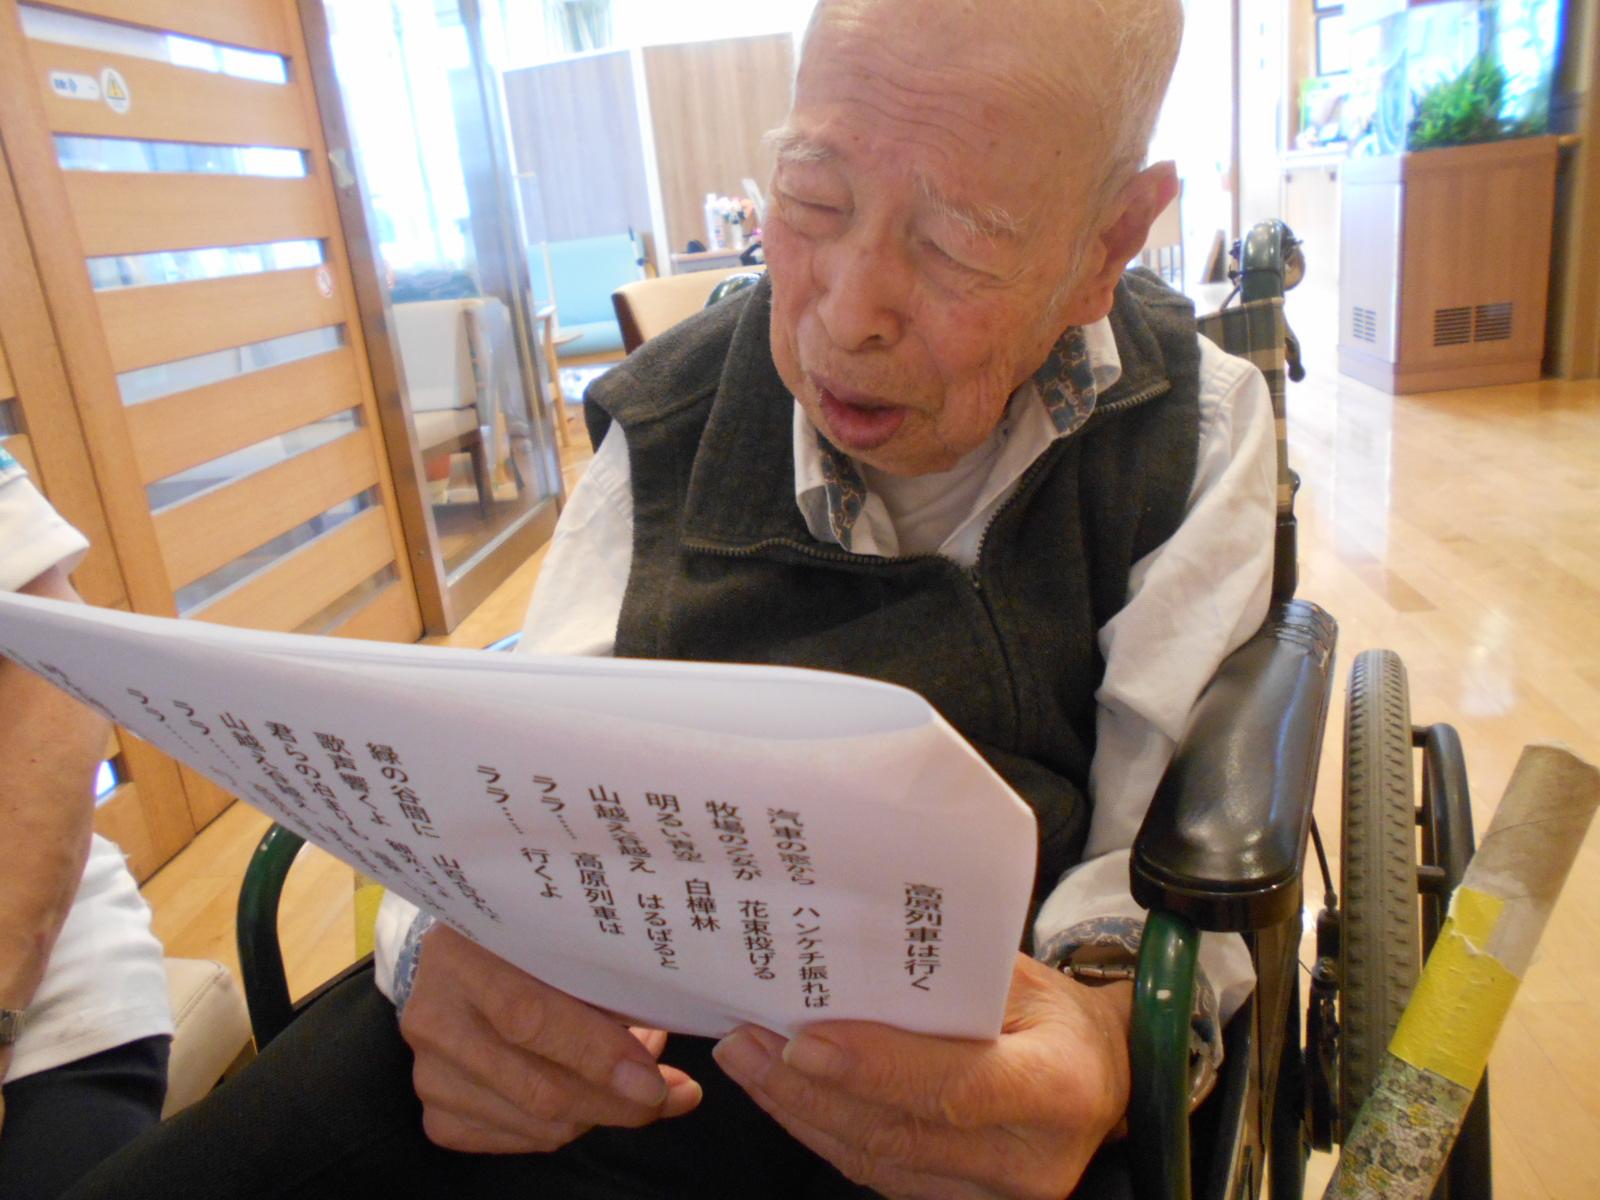 高原列車は行く
汽車の窓から ハンケチ振れば
牧場の乙女が 花束投げる
明るい青空 白樺林
山越え谷越え はるばると
ララ…… 高原列車は
ララ…… 行くよ
緑の谷間に
歌声響くよ 観光バスよ
君らの泊まりも
山越え谷越え
ララ……
ララ……